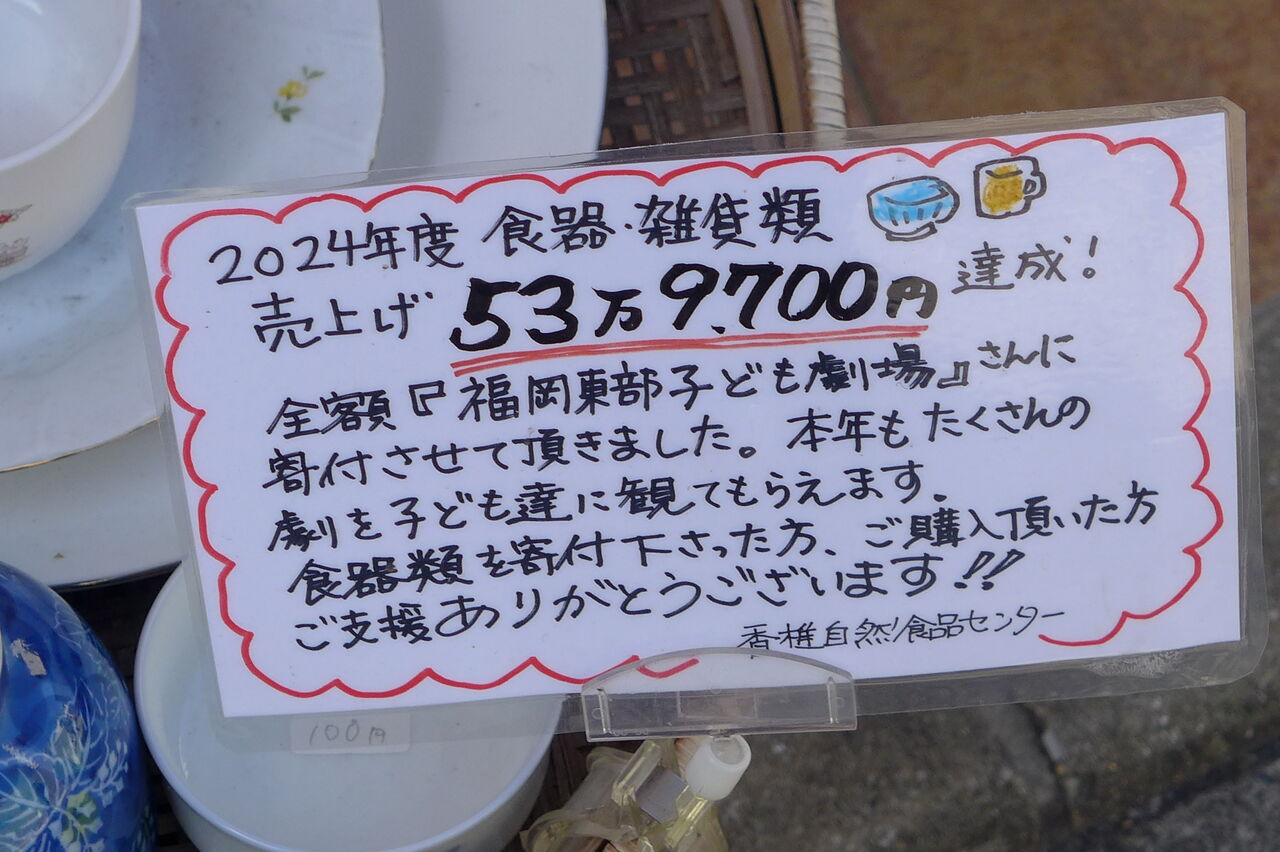 2024年度 食器・雑貨類
売上げ 53万9,700円 達成!
全額『福岡東部子ども劇場』さんに
寄付させて頂きました。本年もたくさんの
劇を子ども達に観てもらえます.
食器類を寄付下さった方、ご購入頂いた方
ご支援ありがとうございます!!
香椎自然食品センター
100円